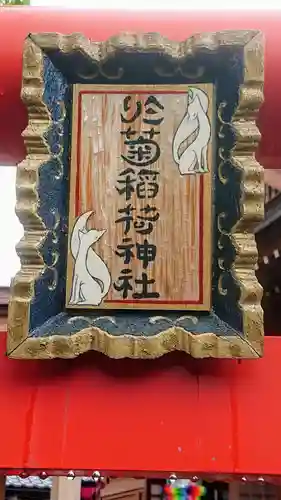 於菊稲荷神社